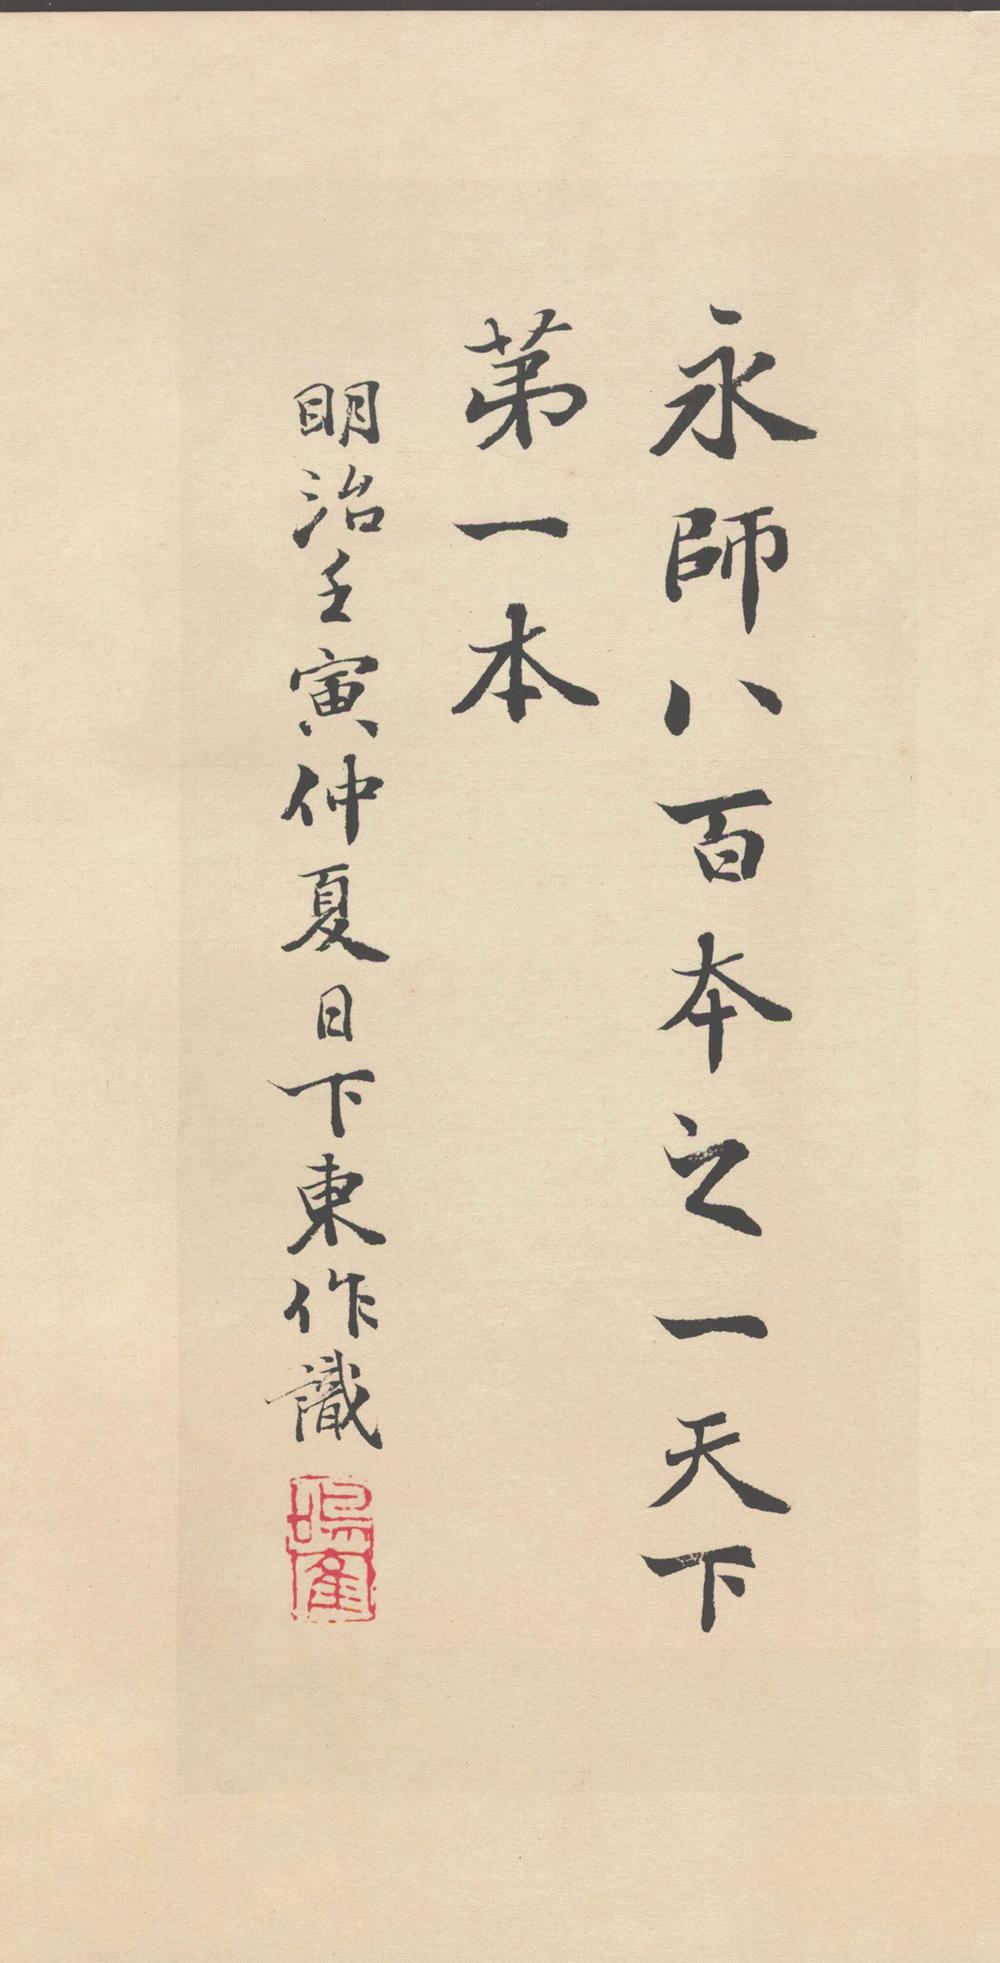 永師八百本之一天下
苐一本
明治壬寅仲夏日下東作識
鳴鶴